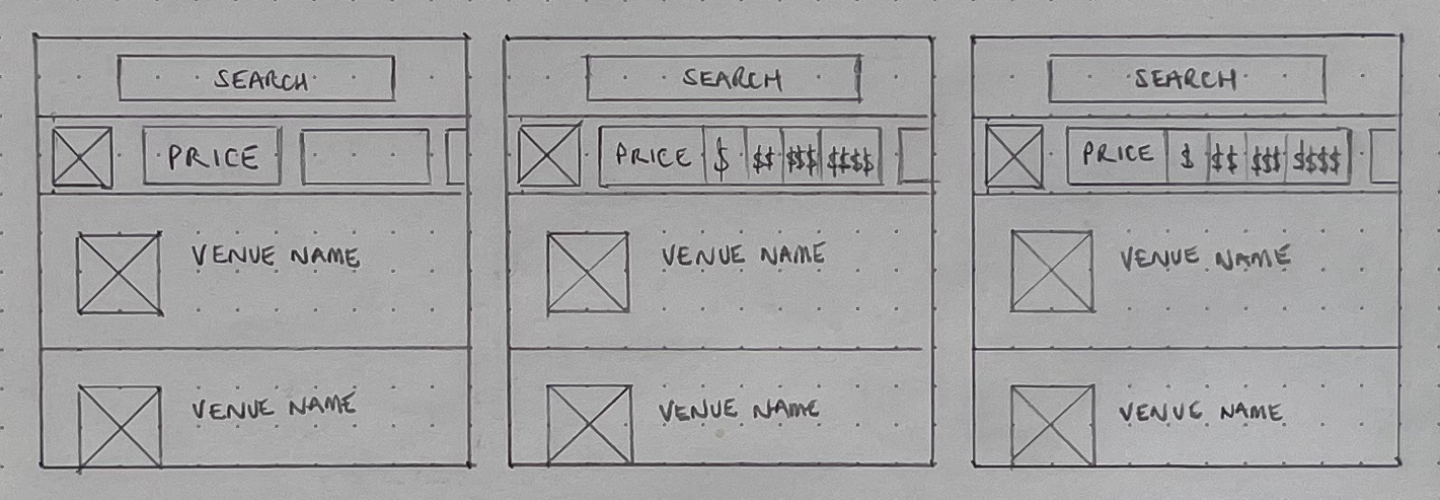 SEARCH
PRICE
VENUE NAME
VENUE NAME
SEARCH
PRICE $ $$ $$$ $$$$
VENUE NAME
VENUE NAME
SEARCH
PRICE $ $$ $$$ $$$$
VENUE NAME
VENUE NAME